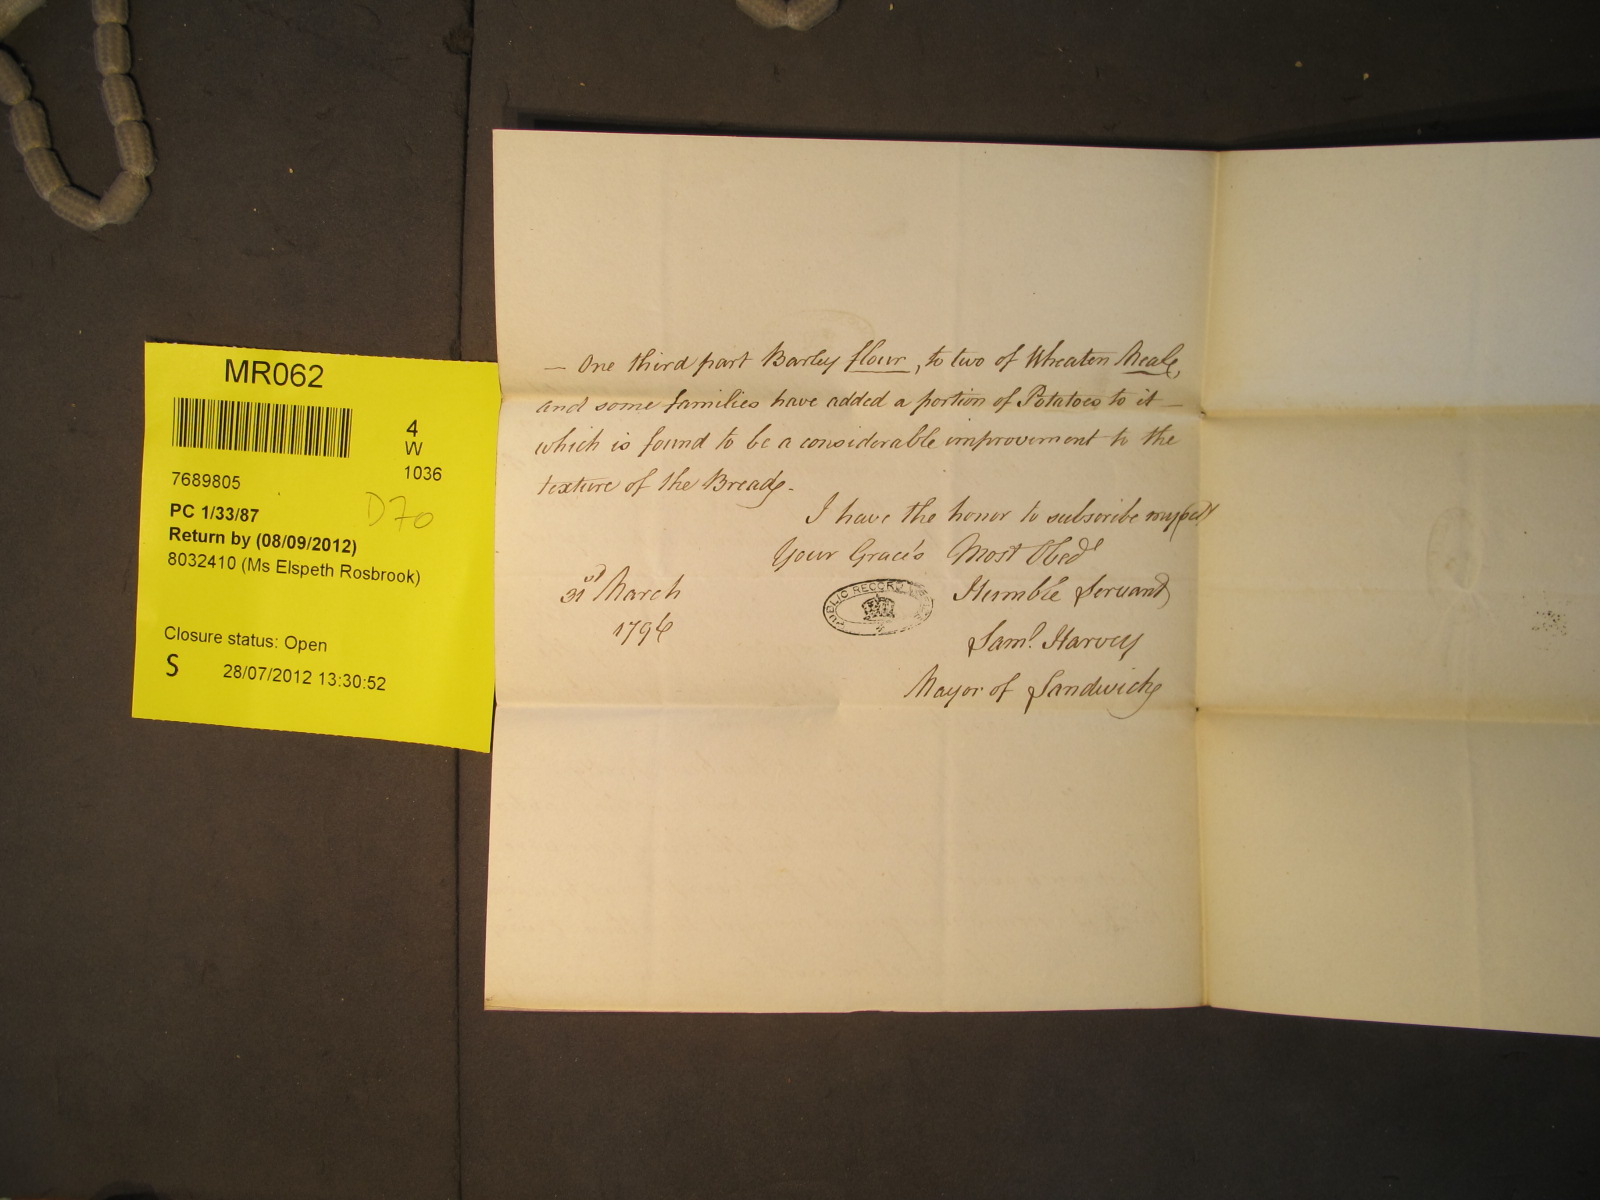 MR062
4
W
1036
7689805
D70
PC 1/33/87
Return by (08/09/2012)
8032410 (Ms Elspeth Rosbrook)
Closure status: Open
S 28/07/2012 13:30:52
— One third part Barley flour, to two of Wheaten Meale,
and some families have added a portion of Potatoes to it —
which is found to be a considerable improvement to the
texture of the Bread. -
I have the honor to subscribe myself
Your Grace's Most Obedt
31st March
1796
PUBLIC RECORD OFFICE
Humble Servant
Saml. Harvey
Mayor of Sandwich